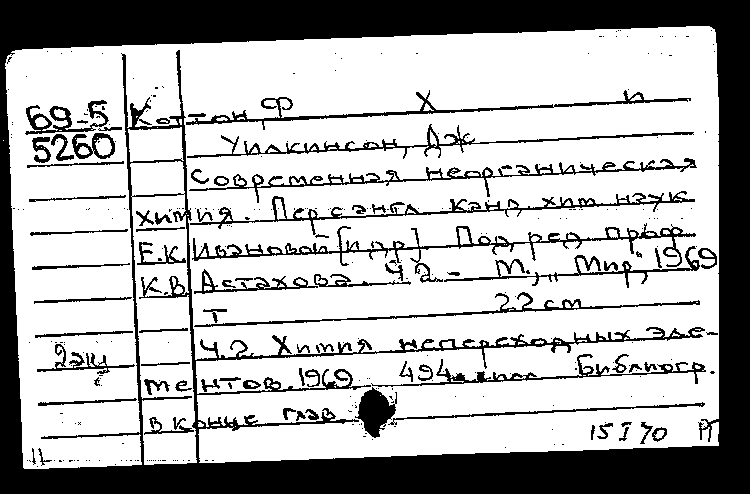 69-5 Коттон, Ф Х п
5260 Уилкинсон, Дж
Современная неорганическая
химия. Пер с англ. канд. хим наук
Е.К. Ивановой [и др]. Под ред проф
К.В. Астахова. Ч 2 - М., „Мир", 1969
т 22 cm
Ч.2. Химия непереходных эле-
2 экз ментов. 1969 494 с илл Библиогр.
в конце глав.
15 I 70 РТ
11